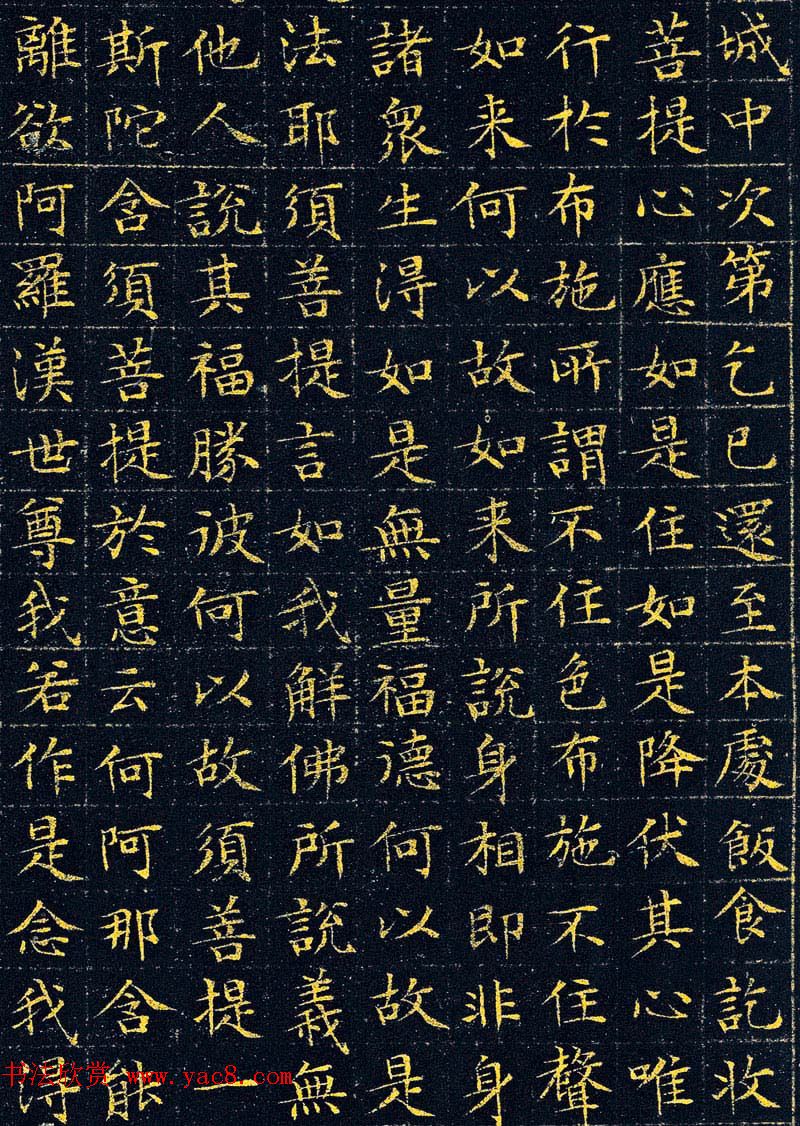 城中次第乞已還至本處飯食訖收
菩提心應如是住如是降伏其心唯
行於布施所謂不住色布施不住聲
如来何以故如来所說身相即非身
諸衆生得如是無量福德何以故是
法耶須菩提言如我解佛所說義無
他人說其福勝彼何以故須菩提一
斯陀含須菩提於意云何阿那含能
離欲阿羅漢世尊我若作是念我得
书法欣赏 www.yac8.com